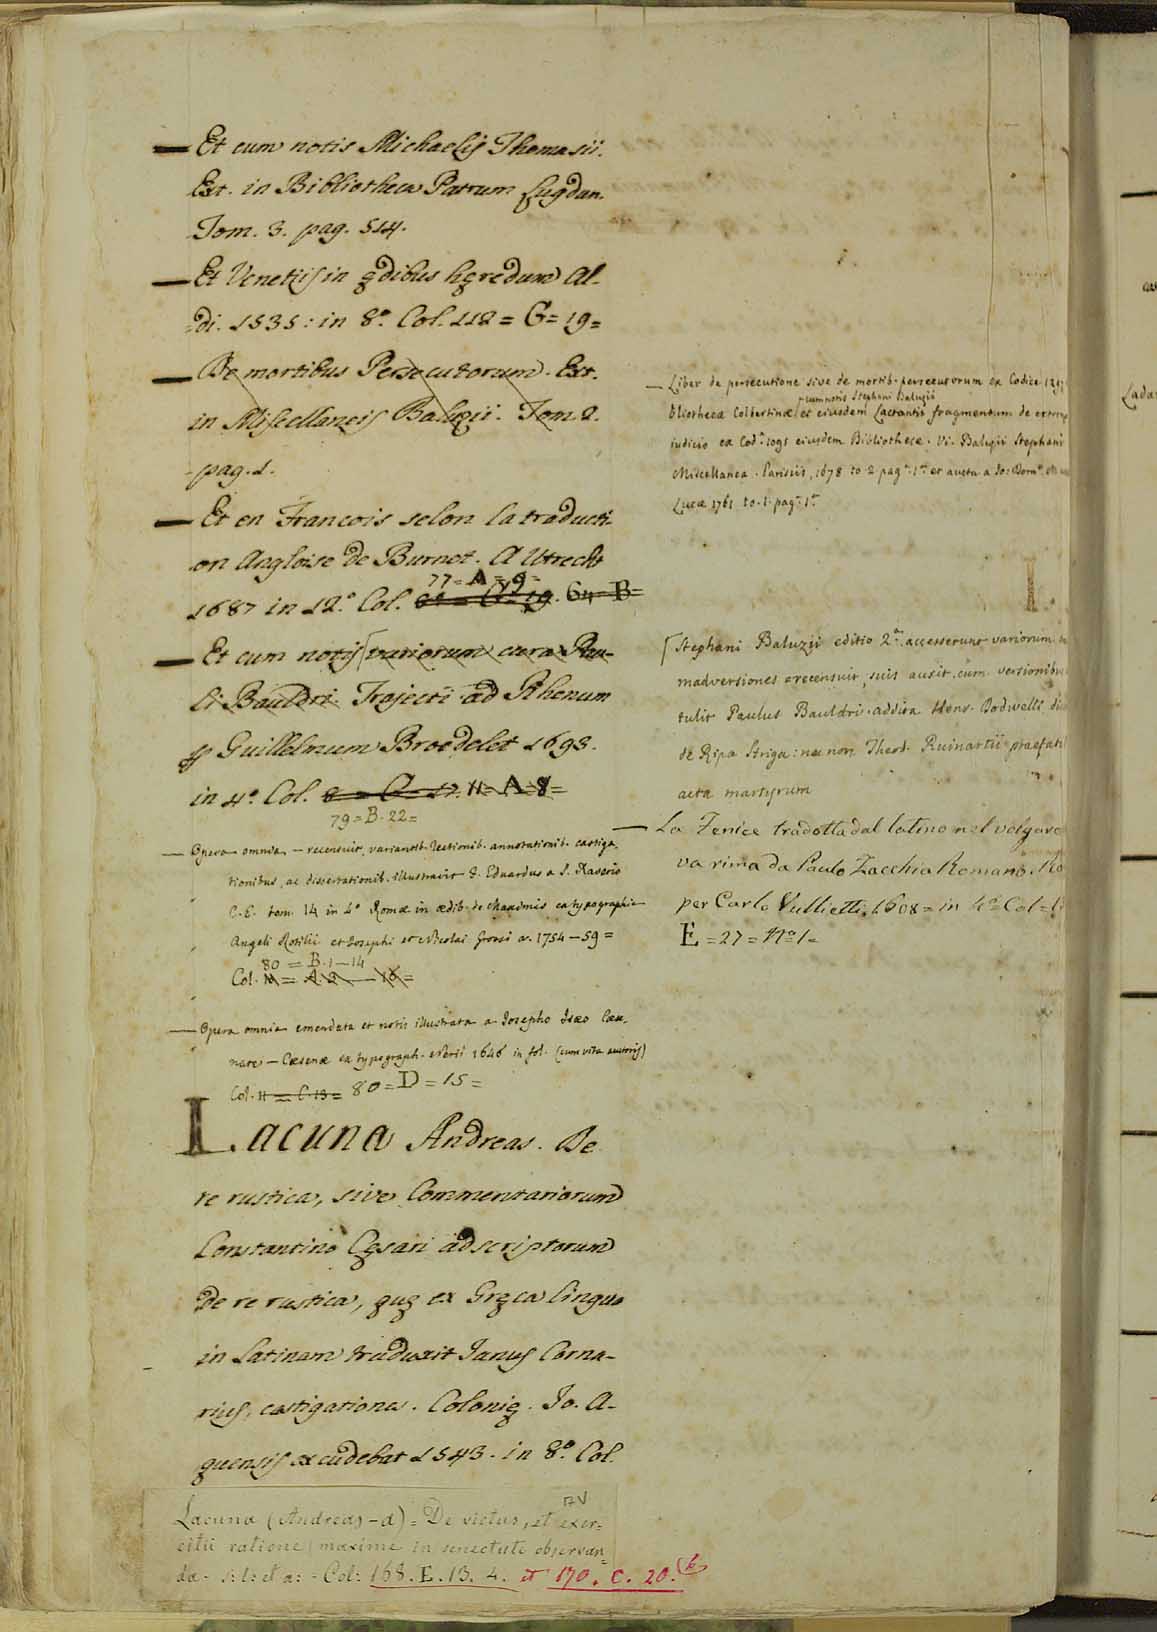 — Et cum notis Michaelis Thomasii.
Ext. in Bibliotheca Patrum Lugdun.
Tom. 3. pag. 514.
— Et Venetiis in ędibus hęredum Al-
di. 1535: in 8.º Col. 118 = G = 19 =
— De mortibus Persecutorum. Ext.
in Miscellaneis Baluzii. Tom. 2.
pag. 1.
— Et en Francois selon la traducti-
on Angloise de Burnet. A Utrecht
77 = A = 9 =
1687 in 12.º Col. 64 B =
— Et cum notis [variorum cura Pau-
li Bauldri. Trajecti ad Rhenum
Guillelmum Broedelet 1693.
in 4.º Col. 11 = A = 8 =
79 = B. 22 =
— Opera omnia — recensuit, variantib. lectionib. annotationib. castiga-
tionibus, ac dissertationib. illustravit F. Eduardus a S. Xaverio
C. E. tom. 14 in 4º Romæ in ædib. de Maximis ex typographia
Angeli Rotilii et Josephi et Nicolai Grossi a. 1754 — 59 =
80 = B. 1 — 14
Col. 11 = A. 3 — 16 =
— Opera omnia emendata et notis illustrata a Josepho Isæo Cæse-
nate — Cæsenæ ex typograph. Nerii 1646 in fol. (cum vita auctoris)
Col. 11 = C. 13 = 80 = D = 15 =
Lacuna Andreas. De
re rustica, sive Commentariorum
Constantino Cęsari adscriptorum
de re rustica, quę ex Gręca lingua
in Latinam traduxit Janus Corna-
rius, castigationes. Colonię. Jo. A-
quensis excudebat 1543. in 8.º Col.
Lacuna (Andreas - a) = De victus, et exer=
citii ratione maxime in senectute observan=
da - s: l: et a: - Col: 168. E. 13. 4. et 170. C. 20.
— Liber de persecutione sive de mortib. persecutorum ex Codice
cum notis Stephani Baluzii
bliothecæ Colbertinæ, et eiusdem Lactantii fragmentum de extremo
iudicio ex Cod. eiusdem Bibliothecæ. Vi. Baluzii Stephani
Miscellanea. Parisiis, 1678 to. 2 pag. 1. et aucta a Jo: Dom.
Lucæ 1761 to. 1. pag. 1.
[Stephani Baluzii editio 2.ª accesserunt variorum
madversiones recensuit, suis auxit, cum versionibus
tulit Paulus Bauldri. addita Henr. Dodwelli
de Ripa Striga: nec non Theod. Ruinartii praefati
acta martyrum
— La Fenice tradotta dal latino nel volgare
va rima da Paulo Zacchia Romano. Ro
per Carlo Vullietti, 1608 = in 4.º Col =
E = 27 = Nº 1 =